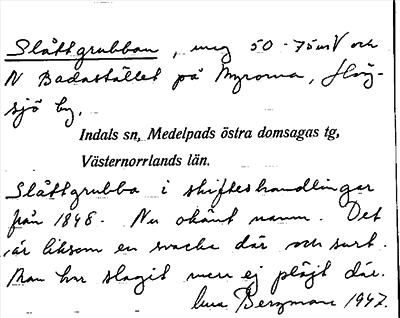 Slåttgrubban, äng 50-75 m V och
N Badastället på Myrorna, Hög-
sjö by.
Indals sn, Medelpads östra domsagas tg,
Västernorrlands län.
Slåttgrubba i skifteshandlingar
från 1848. Nu okänt namn. Det
är liksom en svacka där och surt.
Man har slagit men ej plöjt där.
Bergman 1947.